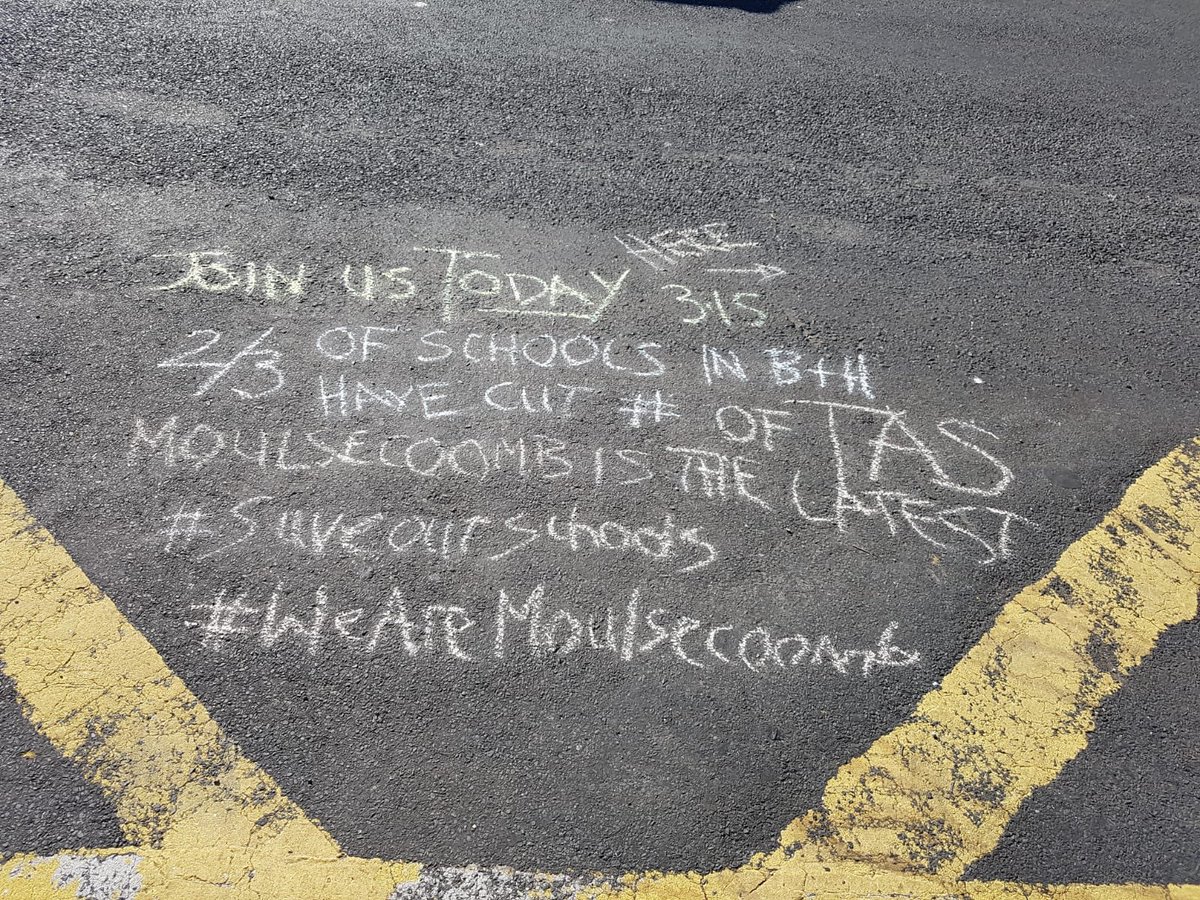 JOIN US TODAY HERE →
3.15
2/3 OF SCHOOLS IN B+H
HAVE CUT # OF TAS
MOULSECOOMB IS THE LATEST
#Saveourschools
#WeAre Moulsecoomb